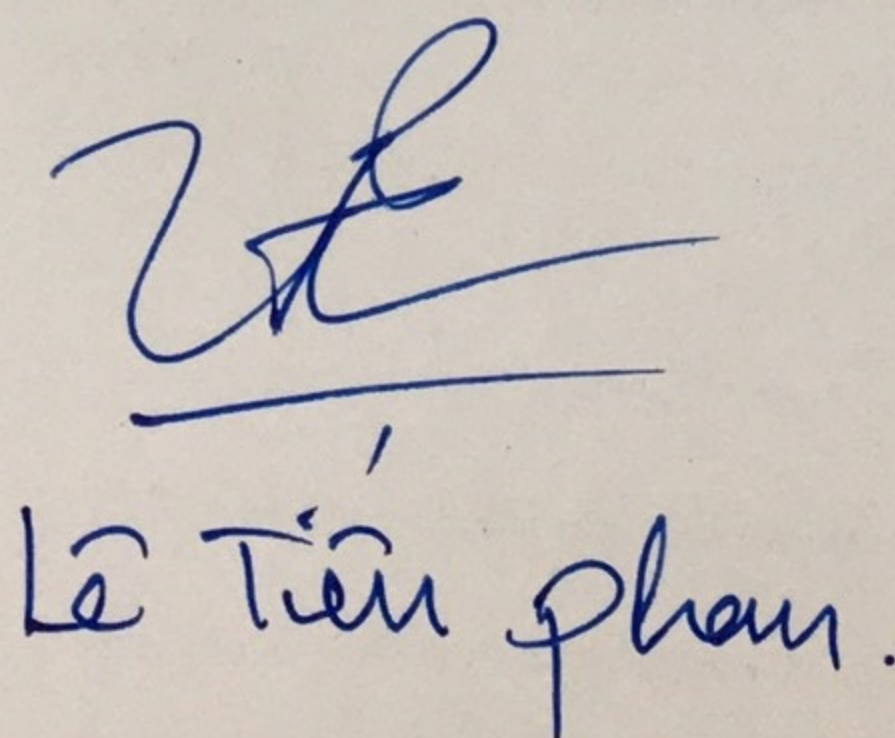 Lê Tiến phan.